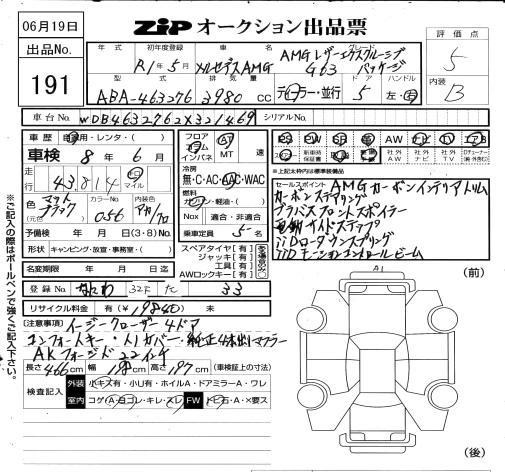 06月19日
ZIP オークション出品票
評価点
5
内装
B
出品No.
191
年式 初年度登録 車名 グレード
R1年5月 メルセデスAMG AMG レザーエクスクルーシブ
G63 パッケージ
型式 排気量 ドア ハンドル
ABA-463276 3980 cc ディーラー・並行 5 左・右
車台No. WDB4632762X321469 シリアルNo.
車歴 自家用・レンタ・( )
車検 8年 6月
走行 43,814 マイル
色(元色) マットブラック カラーNo. 056 内装色 アカ/クロ
予備検 年 月 日 (3・8)No.
形状 キャンピング・放倉・事務室・( )
名変期限 年 月 日迄
フロア コラム インパネ AT MT 速
冷房
無・C・AC・AAC・WAC
燃料 ガソリン・軽油・( )
Nox 適合・非適合
乗車定員 5名
スペアタイヤ【有】
ジャッキ【有】
工具【有】
AWロックキー【有】
PS PW SR 革 AW ナビ TV
新車時保証書 社外AW 社外ナビ 社外TV
※上記太枠内は標準装備品
セールスポイント AMG カーボンインテリアトリム
カーボンステアリング
ブラバスフロントスポイラー
電動サイドステップ
IIDロータウンスプリング
IIDモーションコントロールビーム
登録No. なにわ 327 た 33
リサイクル料金 有(¥19840) 未
【注意事項】イージークローザー4ドア
コンフォートキー・Aカバー・純正4本出しマフラー
AKフォージド22インチ
長さ 466cm 幅 198cm 高さ 197cm (車検証上の寸法)
検査記入 外装 小キズ有・小U有・ホイルA・ドアミラーA・ワレ
室内 コゲ穴・ヨゴレ・キレ・スレ FW トビ石・A・×要ス
A1
(前)
(後)
※ご記入の際はボールペンで強くご記入下さい。